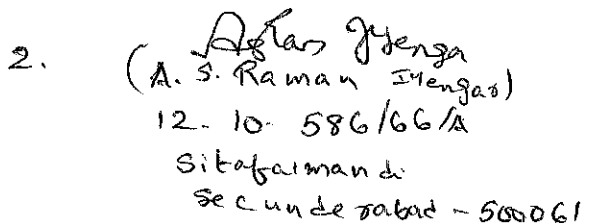 2.
(A. S. Raman Iyengar)
12-10-586/66/A
Sitafalmandi
Secunderabad - 500061